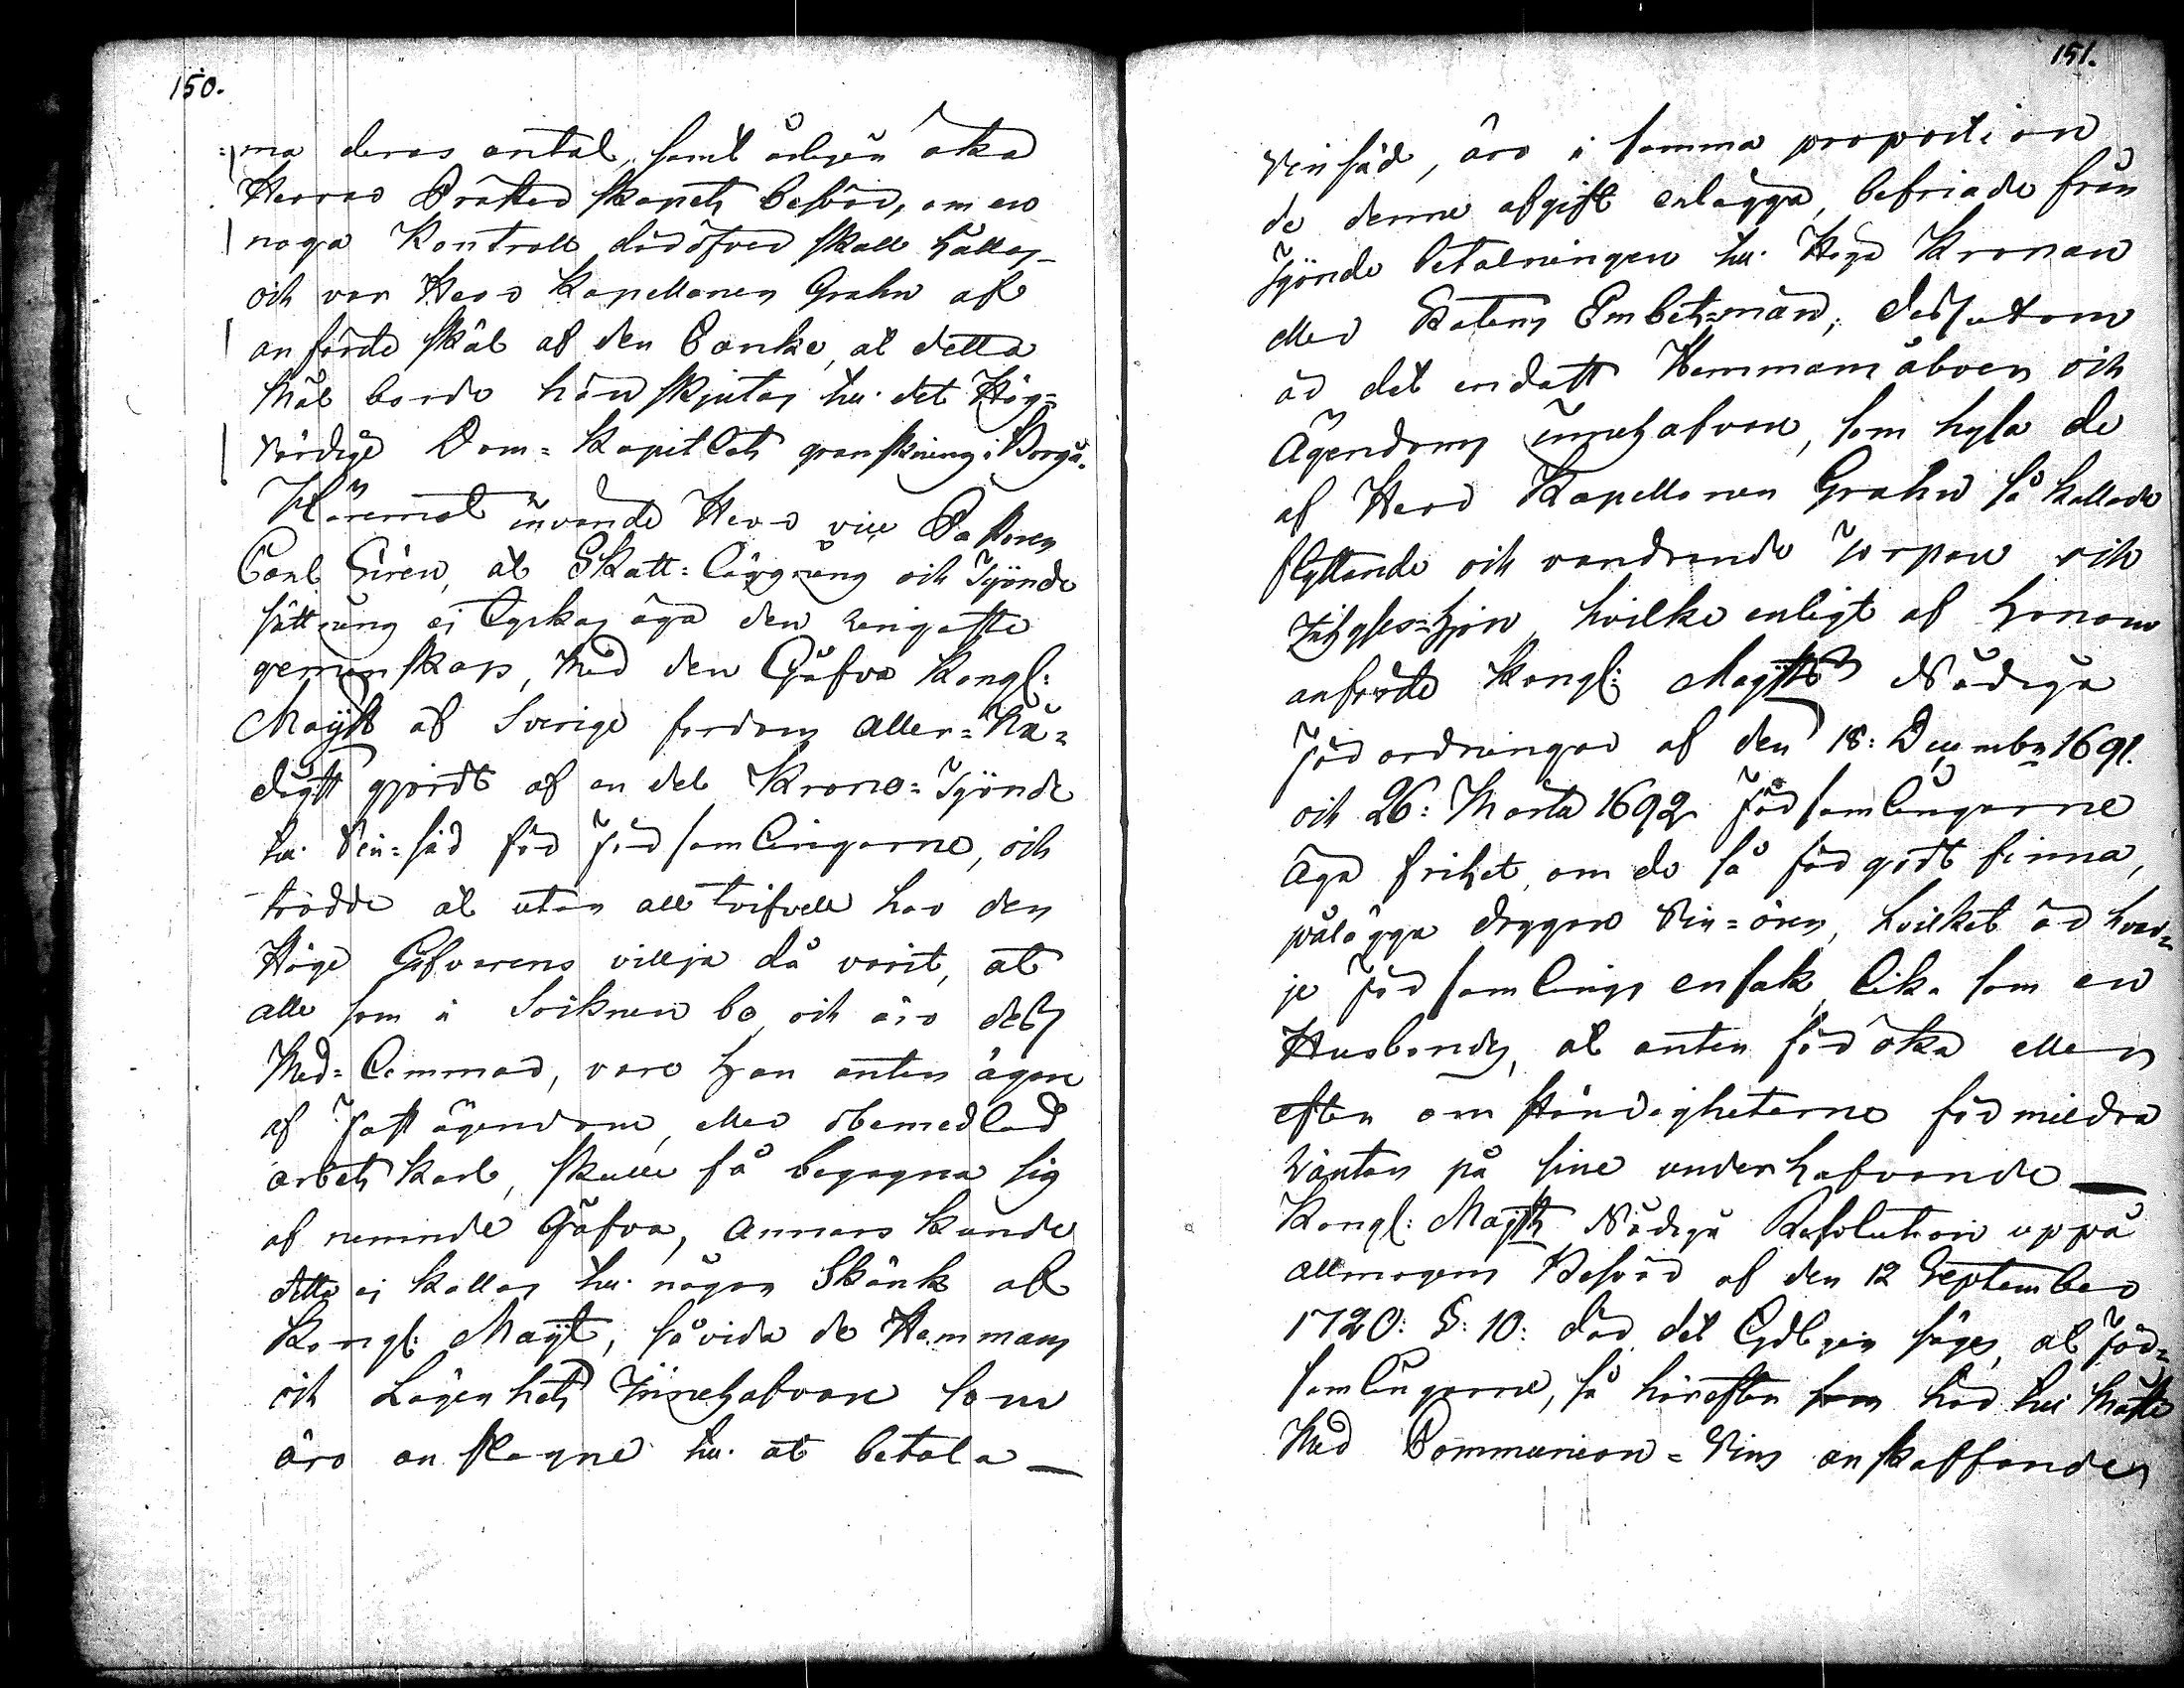 150.
ma deras antal, samt årligen öka
Herrar Prästerskapets besvär, om en
noga Kontroll däröfver skall hållas
och var Herr Kapellanen Grahn af
anförde skäl af den tanke, at detta
Mål borde hänskjutas till det Hög=
vördige Dom=Kapitlets granskning i Borgå.
Häremot invände Herr vice Pastoren
Carl Sirén, at Skatt=läggning och Tjonde
sättning ej lyckas äga den ringaste
gemenskap, med den Gåfva Kongl:
Mayst af Sverige fordom aller=Nå=
digst gjordt af en del Krono=Tjonde
till Vin=säd för Församlingarne, och
trodde at utan allt tvifvell har den
Höge Gifvarens villja då varit, at
alle som i Socknen bo och äro dess
Med=Lemmar, vare han anten ägare
af Fast ägendom, eller obemedlad
arbets karl, skulle få begagna sig
af nemnde Gåfva, annars kunde
detta ej kallas till någon Skänk af
Kongl: Mayt, så vida de Hemmans
och Lägenhets Innehafvare som
äro anslagne till at betala
151.
Vinsäd, äro i samma proportion
de denne afgift erlägga, befriade från
Tjonde betalningen till Höga Kronan
eller Statens Embets=män; dessutom
är det endast Hemmans åboer och
Ägendoms innehafvare, som hysa de
af Herr Kapellanen Grahn så kallade
flyttande och vandrande Torpare och
Inhyses=hjon, hvilke enligt af honom
anförde Kongl: Maysts Nådiga
Förordningar af den 18: December 1691.
och 26: Marti 1692 Församlingarne
äga frihet, om de så för godt finna,
pålägga dryga Vin=ören, hvilket är hvar=
je Församlings ensak, lika som en
Husbonde, at anten föröka eller
efter omständigheterne förmildra
räntan på sine underhafvande
Kongl: Maysts Nådiga Resolution uppå
allmogens Besvär af den 12 September
1720: §: 10: där det tydligen säges, at För=
samlingarne, så härefter som här till måste
Med Communion=Vins anskaffande